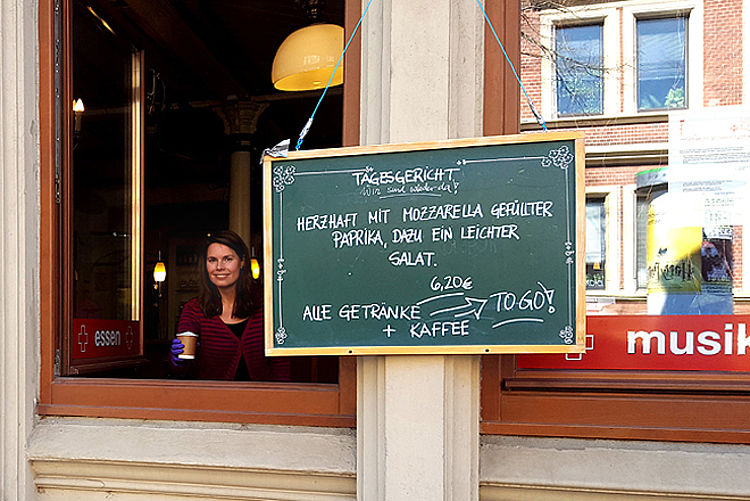 TAGESGERICHT
Wir sind wieder da!
HERZHAFT MIT MOZZARELLA GEFÜLLTER
PAPRIKA, DAZU EIN LEICHTER
SALAT.
6,20€
ALLE GETRÄNKE
+ KAFFEE
TO GO!
essen
musik